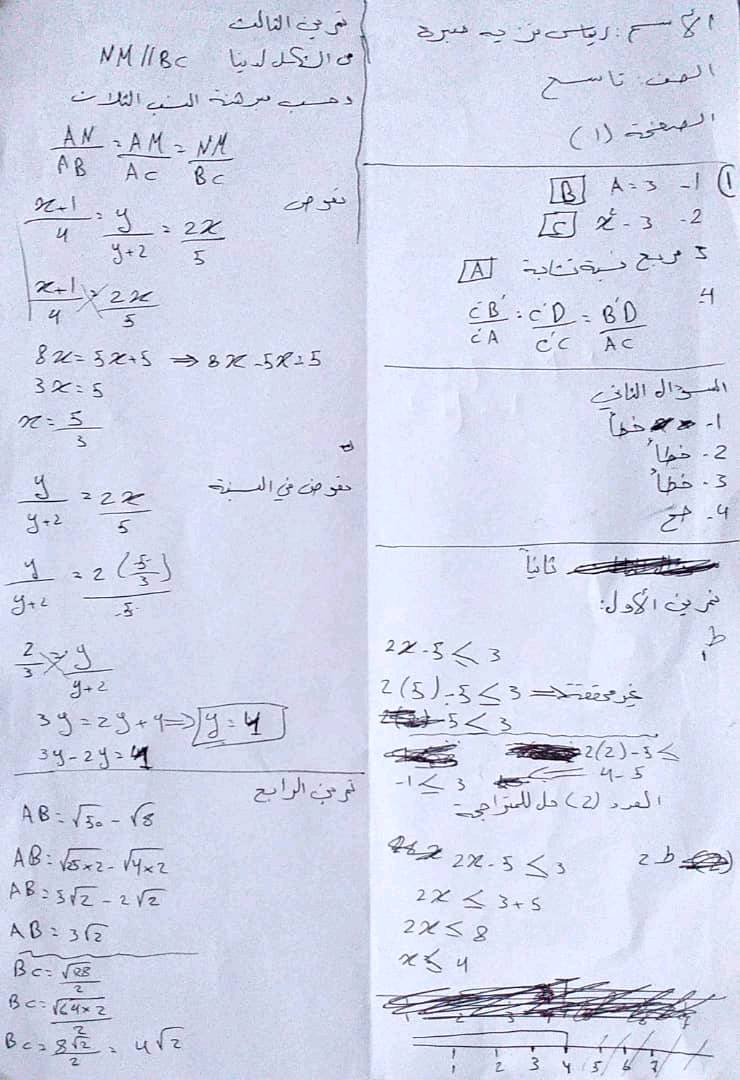 الأسم: رياض نزيه ميرة
الصف: تاسع
الصفحة (1)
① 1- A = 3 [B]
2- x² - 3 [C]
3 مربع نسبة تشابة [A]
4- C'B'/C'A = C'D/C'C = B'D/AC
السؤال الثاني
1- خطأ
2- خطأ
3- خطأ
4- صح
ثانياً
تمرين الأول:
ط1
2x - 5 ≤ 3
2(5) - 5 ≤ 3 ⟹ غير محققة
2(2) - 5 ≤
4 - 5
-1 ≤ 3
العدد (2) حل للمتراجحة
ط 2
2x - 5 ≤ 3
2x ≤ 3 + 5
2x ≤ 8
x ≤ 4
1 2 3 4 5 6 7
تمرين الثالث
من الشكل لدينا NM // BC
وحسب مبرهنة النسب الثلاث
AN/AB = AM/AC = NM/BC
نعوض
x+1/4 = y/y+2 = 2x/5
x+1/4 = 2x/5
8x = 5x + 5 ⟹ 8x - 5x = 5
3x = 5
x = 5/3
نعوض في النسبة
y/y+2 = 2x/5
y/y+2 = 2(5/3)/5
2/3 = y/y+2
3y = 2y + 4 ⟹ y = 4
3y - 2y = 4
تمرين الرابع
AB = √50 - √8
AB = √25×2 - √4×2
AB = 5√2 - 2√2
AB = 3√2
BC = √128/2
BC = √64×2/2
BC = 8√2/2 = 4√2